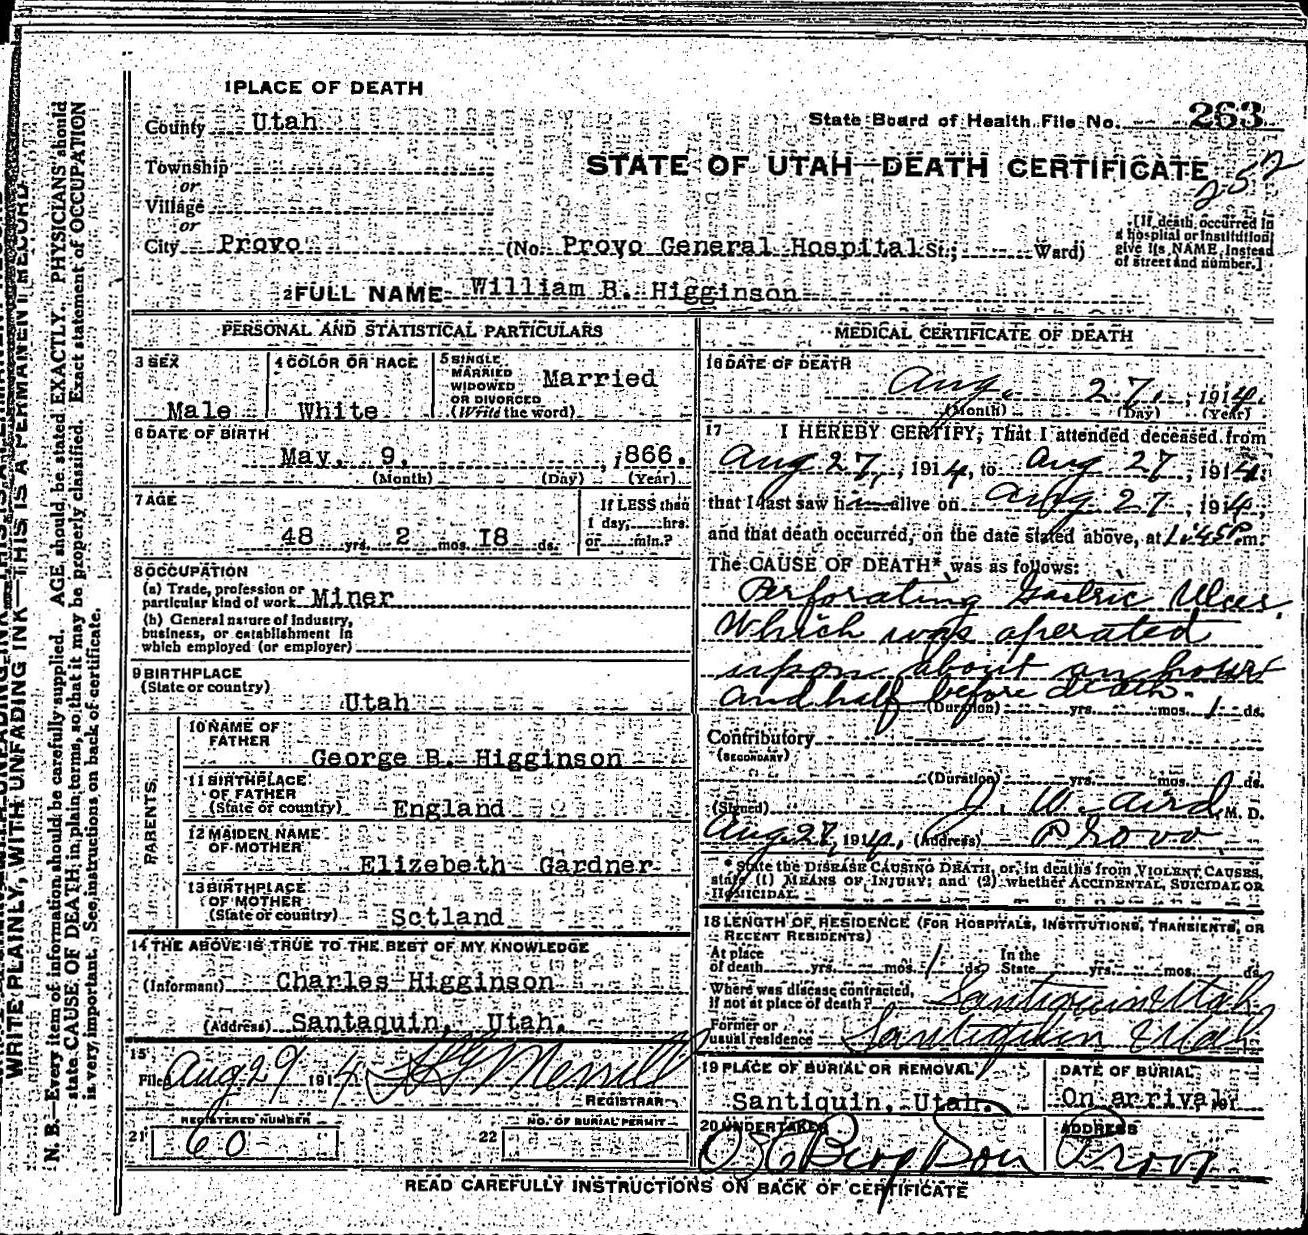 1 PLACE OF DEATH
County Utah
State Board of Health File No. 263
STATE OF UTAH—DEATH CERTIFICATE
252
Township
or
Village
or
City Provo (No. Provo General Hospital St.; Ward)
[If death occurred in a hospital or institution, give its NAME, instead of street and number.]
2 FULL NAME William B. Higginson
PERSONAL AND STATISTICAL PARTICULARS
3 SEX
Male
4 COLOR OR RACE
White
5 SINGLE
MARRIED
WIDOWED
OR DIVORCED
(Write the word)
Married
6 DATE OF BIRTH
May. 9, 1866.
(Month) (Day) (Year)
7 AGE
48 yrs. 2 mos. I8 ds.
If LESS than
1 day, hrs.
or min.?
8 OCCUPATION
(a) Trade, profession or
particular kind of work Miner
(b) General nature of industry,
business, or establishment in
which employed (or employer)
9 BIRTHPLACE
(State or country)
Utah
PARENTS
10 NAME OF
FATHER
George B. Higginson
11 BIRTHPLACE
OF FATHER
(State or country) England
12 MAIDEN NAME
OF MOTHER
Elizebeth Gardner
13 BIRTHPLACE
OF MOTHER
(State or country) Sctland
14 THE ABOVE IS TRUE TO THE BEST OF MY KNOWLEDGE
(Informant) Charles Higginson
(Address) Santaquin, Utah.
15
Filed Aug 29 1914 Merrill
REGISTRAR
REGISTERED NUMBER
21 60
NO. OF BURIAL PERMIT
22
MEDICAL CERTIFICATE OF DEATH
16 DATE OF DEATH
Aug. 27, 1914.
(Month) (Day) (Year)
17 I HEREBY CERTIFY, That I attended deceased from
Aug 27, 1914, to Aug 27, 1914,
that I last saw him alive on Aug 27, 1914,
and that death occurred, on the date stated above, at 1:45 P.m.
The CAUSE OF DEATH* was as follows:
Perforating Gastric Ulcer
Which was operated
upon about an hour
and half before death.
(Duration) yrs. mos. 1 ds.
Contributory
(SECONDARY)
(Duration) yrs. mos. ds.
(Signed) J. W. Aird, M. D.
Aug 27, 1914, (Address) Provo
* State the DISEASE CAUSING DEATH, or, in deaths from VIOLENT CAUSES,
state (1) MEANS OF INJURY; and (2) whether ACCIDENTAL, SUICIDAL OR
HOMICIDAL.
18 LENGTH OF RESIDENCE (FOR HOSPITALS, INSTITUTIONS, TRANSIENTS, OR
RECENT RESIDENTS)
At place
of death yrs. mos. 1 ds.
In the
State yrs. mos. ds.
Where was disease contracted,
if not at place of death? Santiquin Utah
Former or
usual residence Santiquin Utah
19 PLACE OF BURIAL OR REMOVAL
Santiquin, Utah.
DATE OF BURIAL
On arrival
20 UNDERTAKER
ADDRESS
Provo
READ CAREFULLY INSTRUCTIONS ON BACK OF CERTIFICATE
WRITE PLAINLY, WITH UNFADING INK—THIS IS A PERMANENT RECORD
N. B.—Every item of information should be carefully supplied. AGE should be stated EXACTLY. PHYSICIANS should
state CAUSE OF DEATH in plain terms, so that it may be properly classified. Exact statement of OCCUPATION
is very important. See instructions on back of certificate.